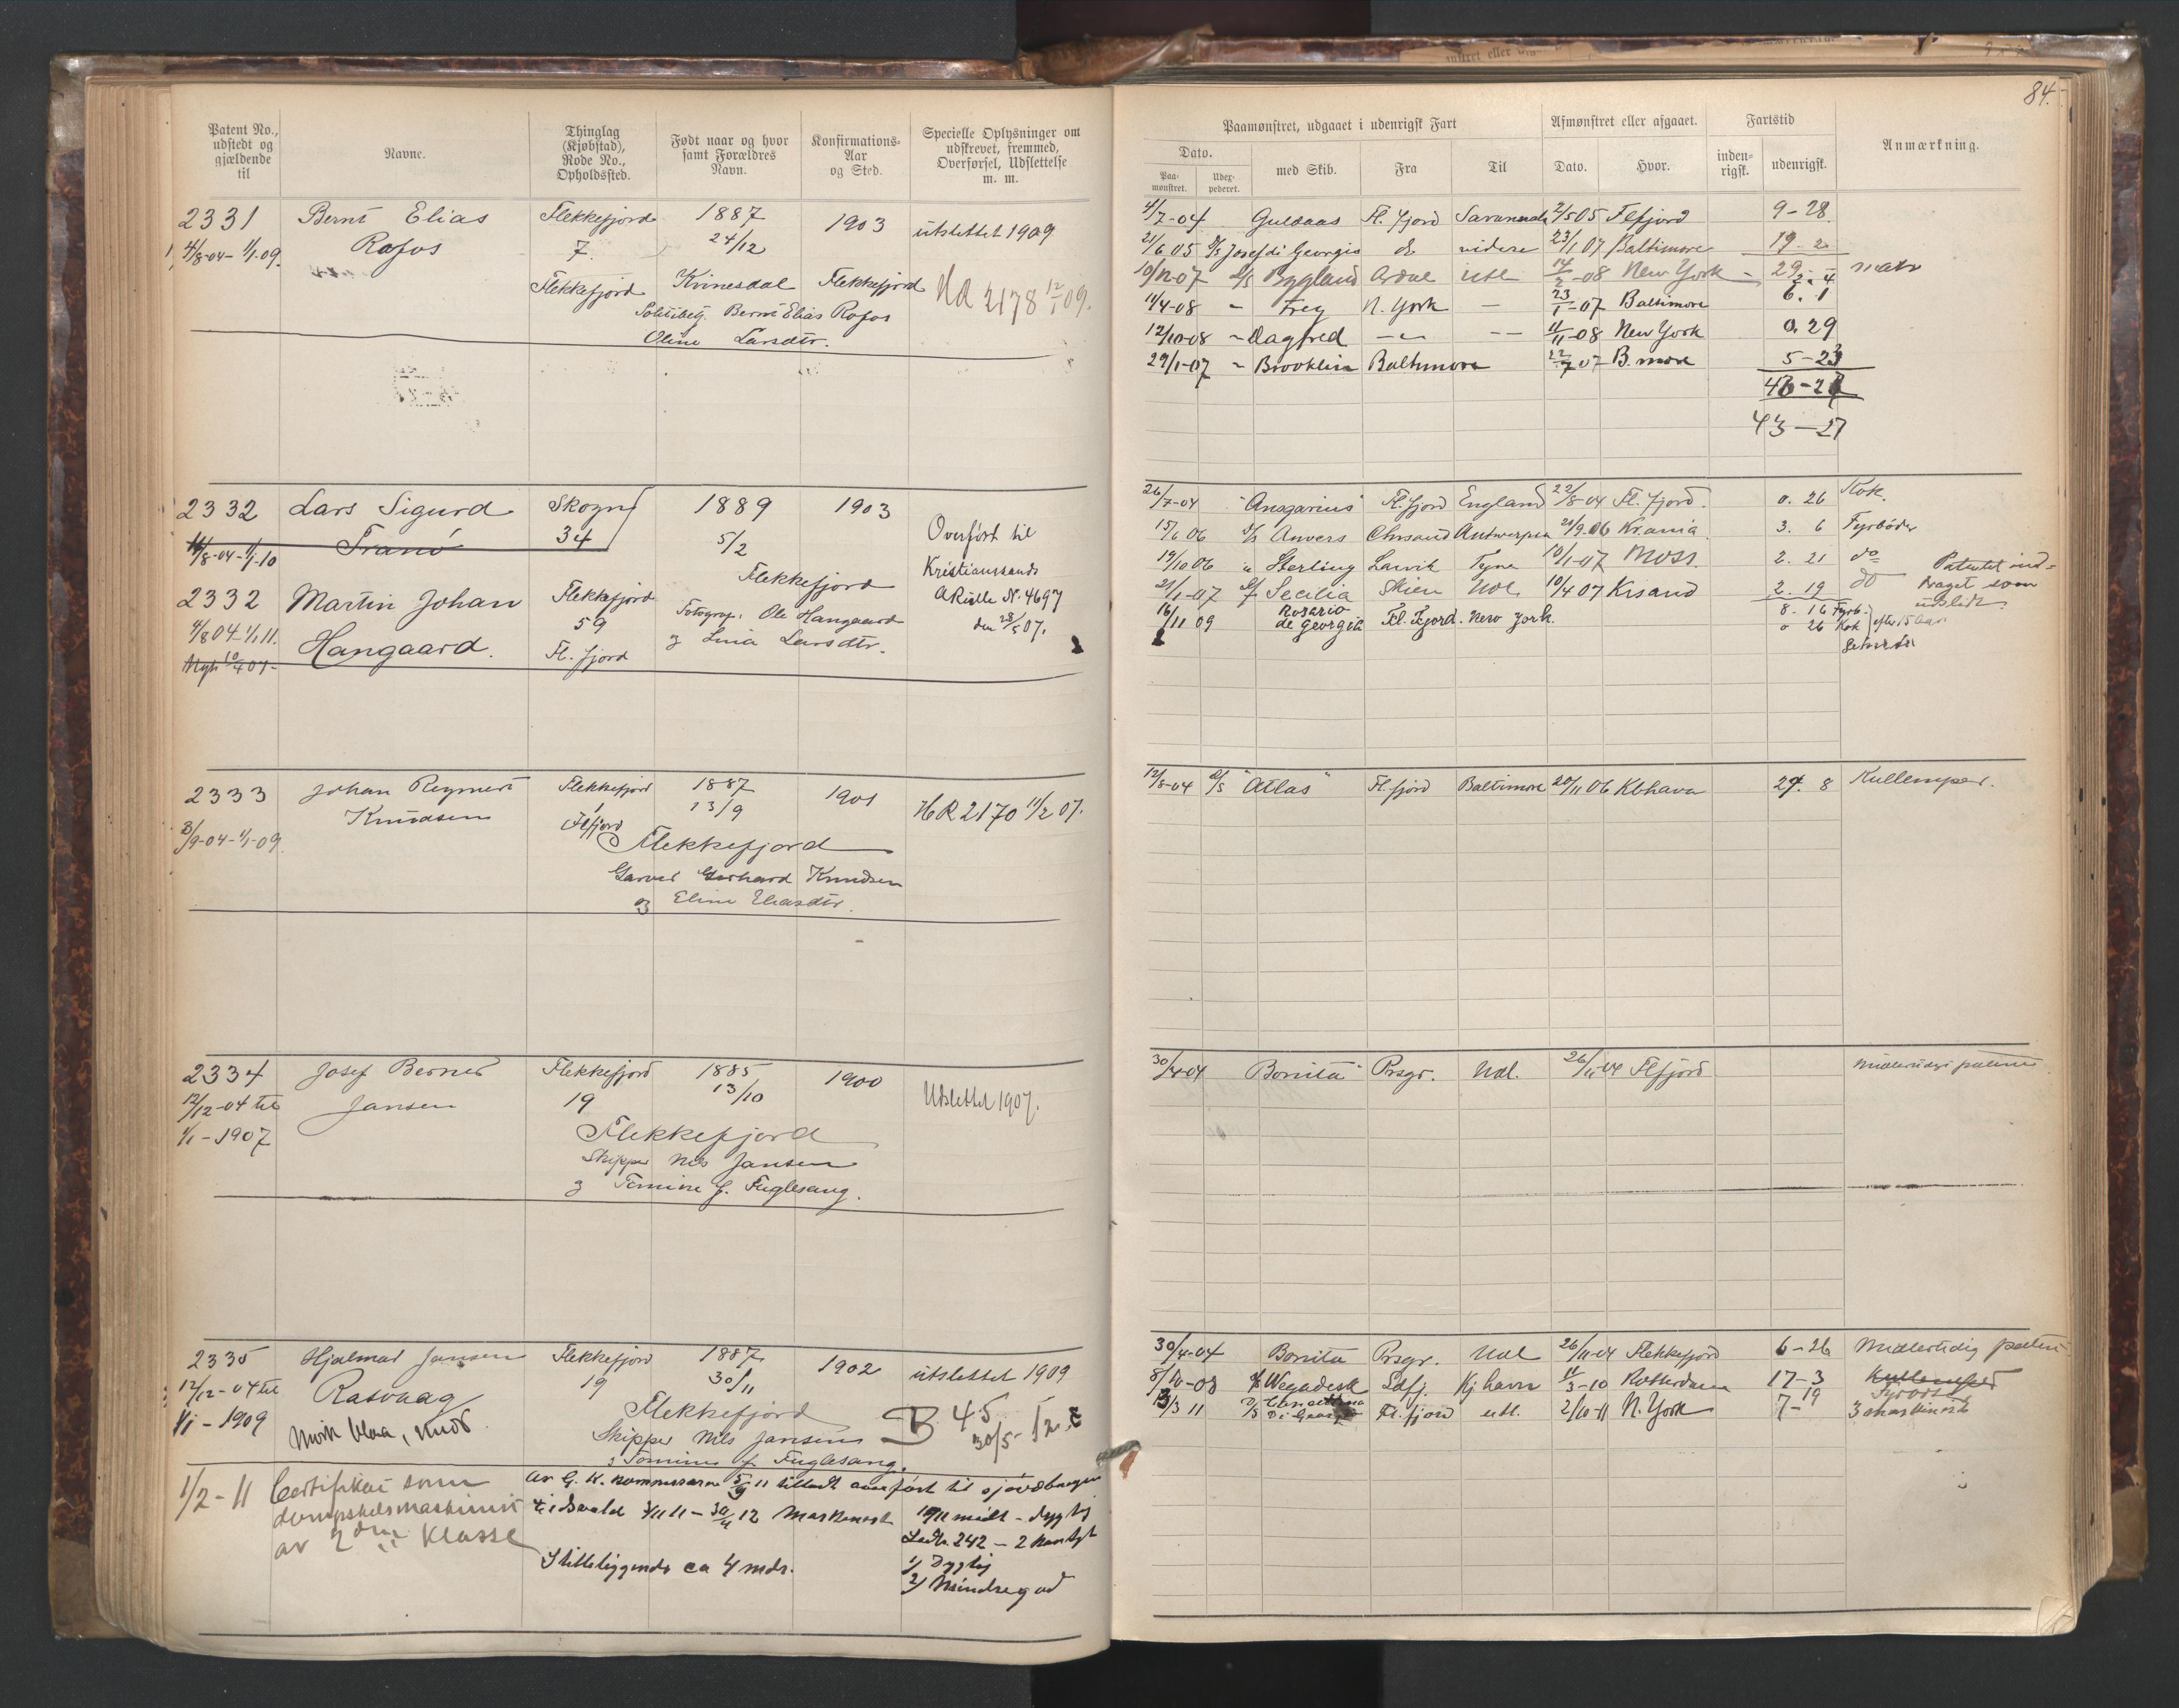 84.
Patent No., udstedt og gjældende til
Navne.
Thinglag (Kjøbstad), Rode No., Opholdssted.
Født naar og hvor samt Forældres Navn.
Konfirmations-Aar og Sted.
Specielle Oplysninger om udskrevet, fremmed, Overførsel, Udslettelse m. m.
Paamønstret, udgaaet i udenrigsk Fart
Afmønstret eller afgaaet.
Fartstid
Anmærkning.
Dato.
Paa-mønstret.
Udex-pederet.
med Skib.
Fra
Til
Dato.
Hvor.
inden-rigsk.
udenrigsk.
2331 Bernt Elias Flekkefjord 1887 1903 utslettet 1909
4/8-04-1/1.09. Rafos 7. 24/12
Flekkefjord Kvinesdal Flekkefjord
Bernt Elias Rafos
Oline Larsdtr.
4/7-04 Guldaas Fl. fjord 2/5 05 Flfjord 9-28
21/6 05 Josef di Georgio do videre 23/1 07 Baltimore 19-2
10/12-07 D/S Bygland Ardal 14/2-08 New York 2-4
11/4-08 " Frey N. York — 23/1-07 Baltimore 6.1
12/10-08 " Dagfred 11/11-08 New York 0.29
29/1-07 " Brooklin Baltimore 22/7 07 B.more 5-23
43-27
2332 Lars Sigurd Skogn 1889 1903
4/8-04-1/1-10 Tranö 34 5/2
Overført til
Kristianssands
ARulle N. 4697
den 28/5 07.
2332 Martin Johan Flekkefjord Flekkefjord
4/8 04-1/1 11. Hangaard. 59 Fotograf. Ole Hangaard
Fl. fjord og Lina Larsdtr.
26/7-04 "Ansgarius" Fl. fjord England 22/8-04 Fl. fjord. 0. 26 Kok.
15/6 06 D/S Anvers Chrsand Antwerpen 21/9.06 Kr.ania 3. 6 Fyrbøder
19/10 06 " Sterling Larvik Tyne 10/1-07 Moss. 2. 21 do
21/1-07 Secilia Skien Udl. 10/4 07 Krsand 2. 19 do
Patentet ind-
draget som
udslidt
16/11 09 Rosario de Georgia Fl. Fjord. New York. 8. 16 Fyrb.
0 26 Kok
2333 Johan Reymert Flekkefjord 1887 1901 HR 2170 11/2 07.
3/9-04-1/1-09. Knudsen Flfjord 13/9
Flekkefjord
Garver Gerhard Knudsen
og Eline Eliasdtr.
12/8-04 D/S "Atlas" Fl fjord Baltimore 20/11 06 Kbhavn 27. 8 Kullemper.
2334 Josef Berner Flekkefjord 1885 1900 Utslettet 1907.
12/12-04 til Jansen 19 13/10
1/1-1907
Flekkefjord
Skipper Nils Jansen
og Tomine J. Fuglesang.
Bonita Prsgr. Udl. 26/11-04 Flfjord Midlertidigt patent
2335 Hjalmar Jansen Flekkefjord 1887 1902 utslettet 1909
12/12-04 til Rasvaag 19 30/11
1/1-1909
Flekkefjord
Skipper Nils Jansen
og Tomine J. Fuglesang.
B 45
30/4-04 Bonita Prsgr. Udl 26/11-04 Flekkefjord 6-26 Midlertidig patent
8/10-08 Wegadesk Sdfj. Kj havn 11/3-10 Rotterdam 17-3 Kullemper
Fyrbøder
13/3 11 D/S Di Georgio Fl. fjord utl. 2/10-11 N. York 7-19 3 maskinist
1/2-11 Certifikat som
dampskibsmaskinist
av 2den Klasse
5/9 11 tilladt overført til sjøvæbningen
Eidsvold 3/11 11-30/4 12 Maskinist
Stilleliggende ca 4 mdr.
1/ Dygtig
2/ Mindre god